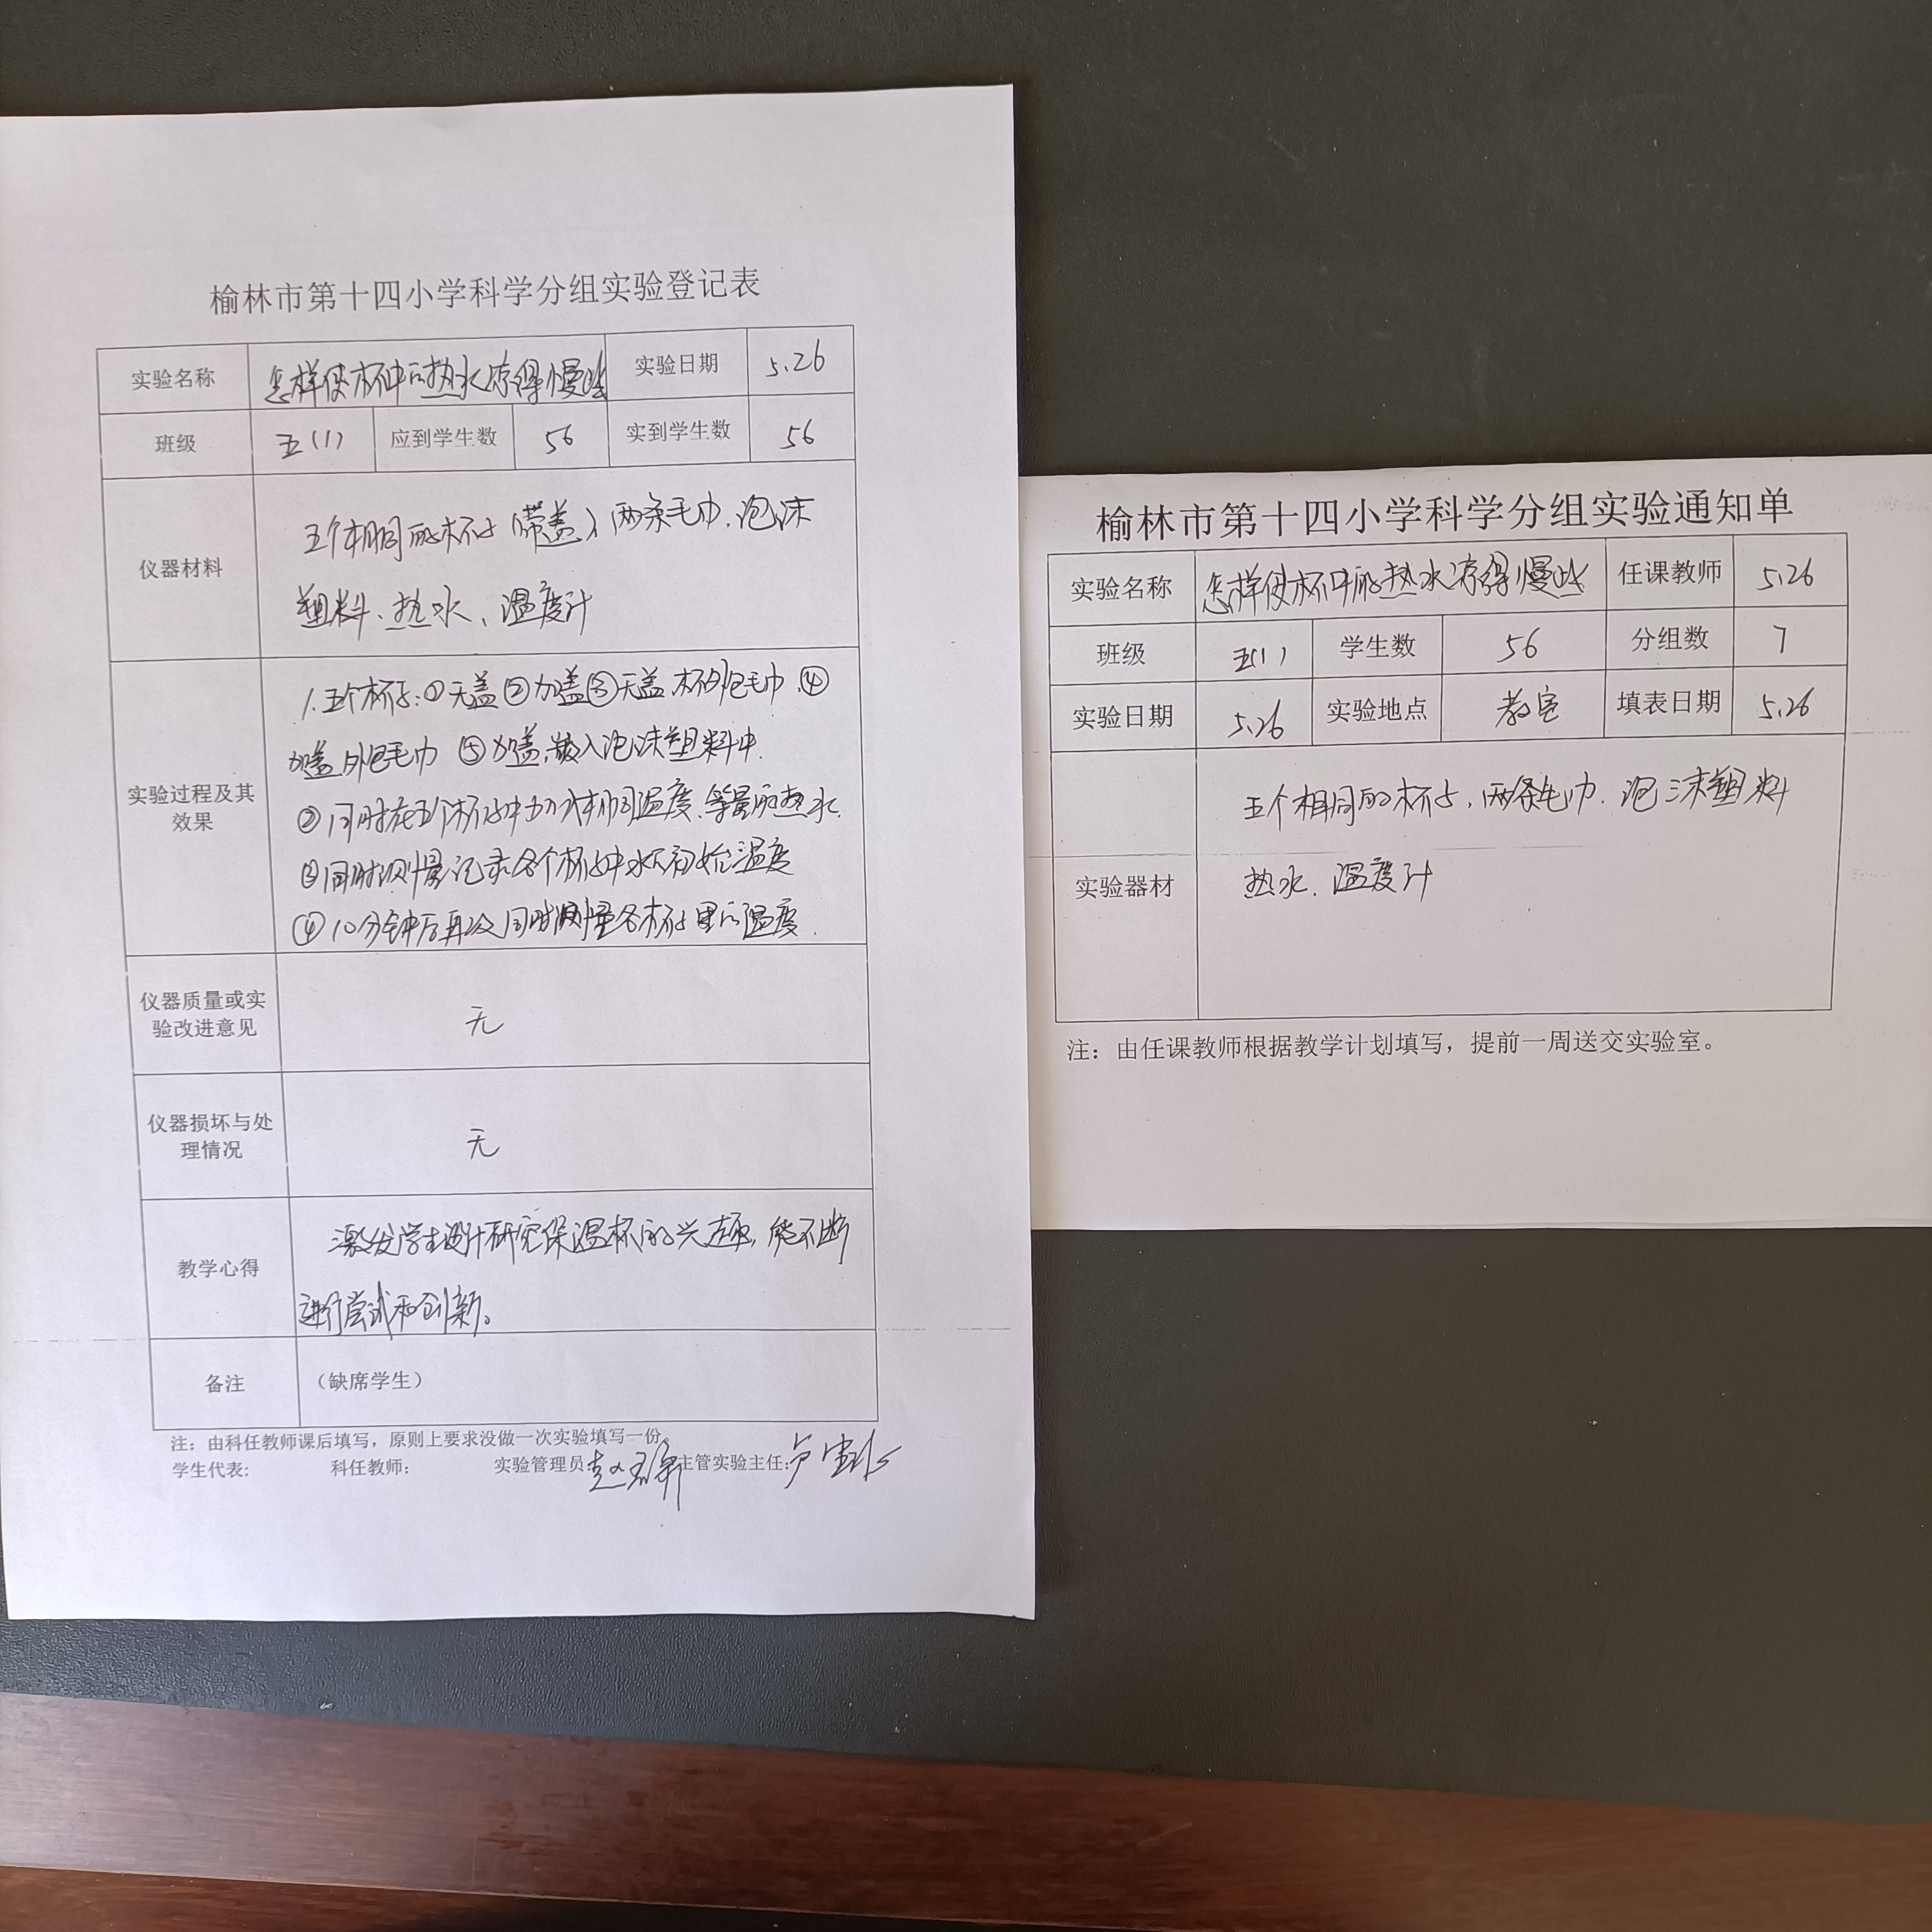 榆林市第十四小学科学分组实验登记表
实验名称 怎样使杯中的热水凉得慢些 实验日期 5.26
班级 五(1) 应到学生数 56 实到学生数 56
仪器材料
五个相同的杯子(带盖)两条毛巾、泡沫
塑料、热水、温度计
实验过程及其
效果
1.五个杯子:①无盖②加盖③无盖杯外包毛巾④
加盖外包毛巾 ⑤加盖,嵌入泡沫塑料中.
②同时在五个杯子中加入相同温度、等量的热水.
③同时测量记录各个杯子中水的初始温度
④10分钟后再次同时测量各杯子里的温度.
仪器质量或实
验改进意见
无
仪器损坏与处
理情况
无
教学心得
激发学生设计研究保温杯的兴趣,能不断
进行尝试和创新。
备注 (缺席学生)
注:由科任教师课后填写,原则上要求没做一次实验填写一份。
学生代表: 科任教师: 实验管理员: 主管实验主任:
榆林市第十四小学科学分组实验通知单
实验名称 怎样使杯中的热水凉得慢些 任课教师 5.26
班级 五(1) 学生数 56 分组数 7
实验日期 5.26 实验地点 教室 填表日期 5.26
实验器材
五个相同的杯子,两条毛巾.泡沫塑料
热水.温度计
注:由任课教师根据教学计划填写,提前一周送交实验室。